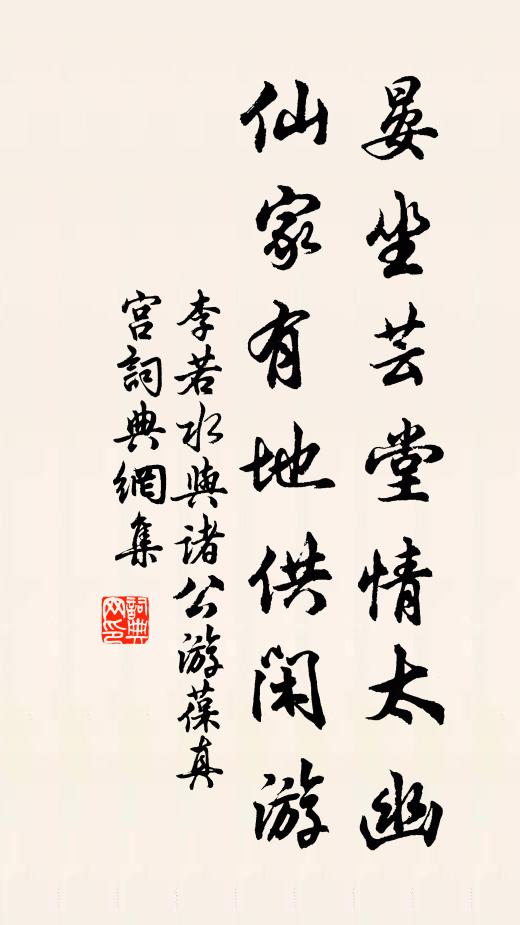 晏坐芸堂情太幽
仙家有地供闲游
李若水與諸公游葆真
宫詞典網集
詞典网印